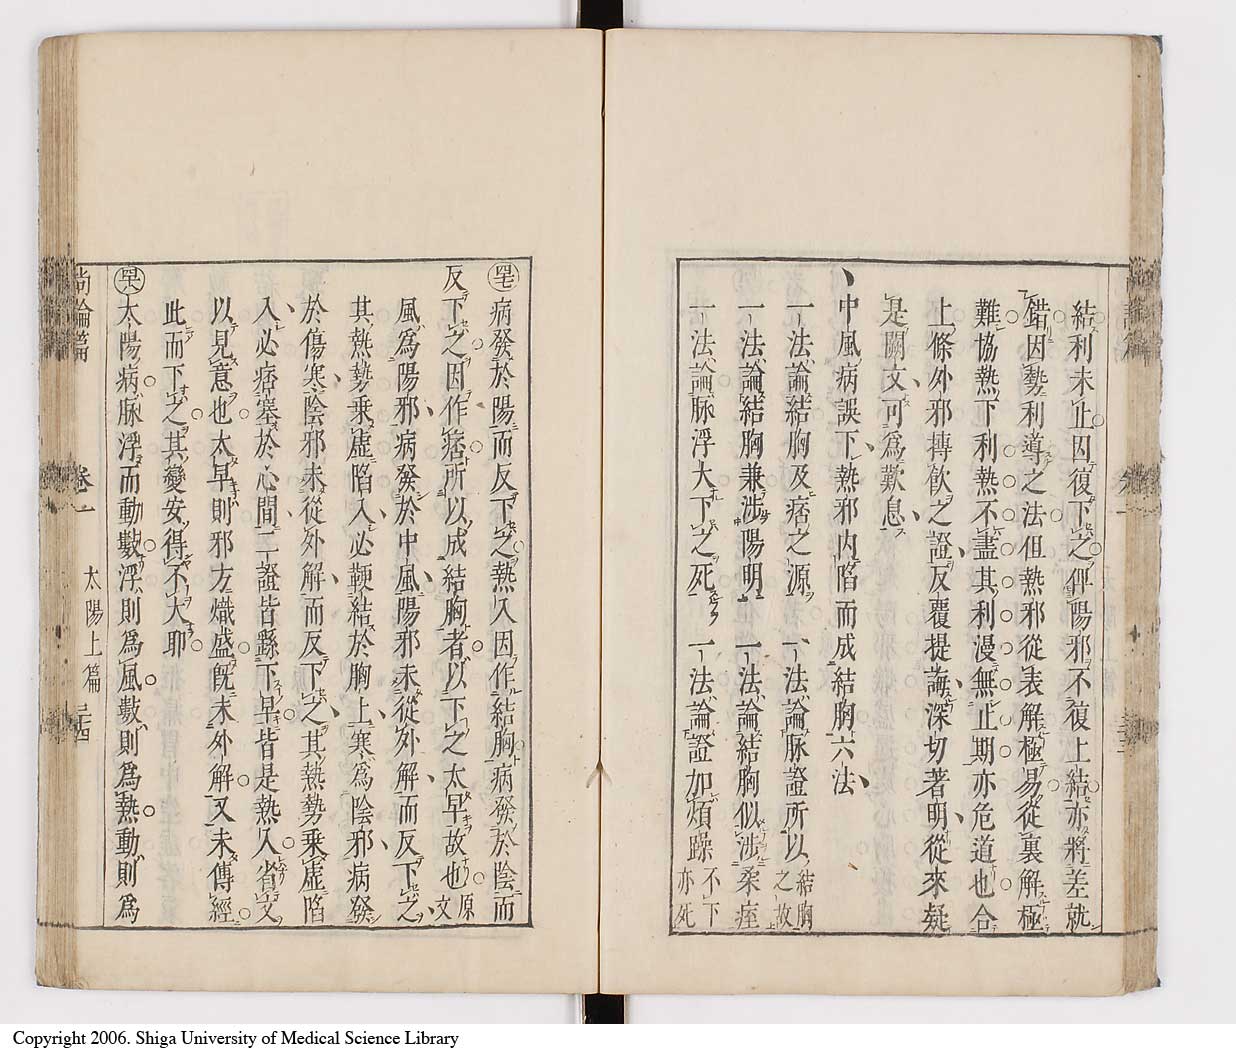 結利未止因復下之俾陽邪不復上結亦將差就
錯因勢利導之法但熱邪從表解極易從裏解極
難協熱下利熱不盡其利漫無止期亦危道也合
上條外邪摶飲之證反覆提誨深切著明從來疑
是闕文可爲歎息
中風病誤下熱邪內陷而成結胸六法
一法論結胸及痞之源 一法論脉證所以結胸之故
一法論結胸兼涉陽明 一法論結胸似涉柔痓
一法論脉浮大下之死 一法論證加煩躁不下亦死
病發於陽而反下之熱入因作結胸病發於陰而
反下之因作痞所以成結胸者以下之太早故也原文
風爲陽邪病發於中風陽邪未從外解而反下之
其熱勢乘虛陷入必鞕結於胸上寒爲陰邪病發
於傷寒陰邪未從外解而反下之其熱勢乘虛陷
入必痞塞於心間二證皆繇下早皆是熱入省文
以見意也太早則邪方熾盛旣未外解又未傳經
此而下之其變安得不大耶
太陽病脉浮而動數浮則爲風數則爲熱動則爲
尚論篇 卷一 太陽上篇
Copyright 2006. Shiga University of Medical Science Library